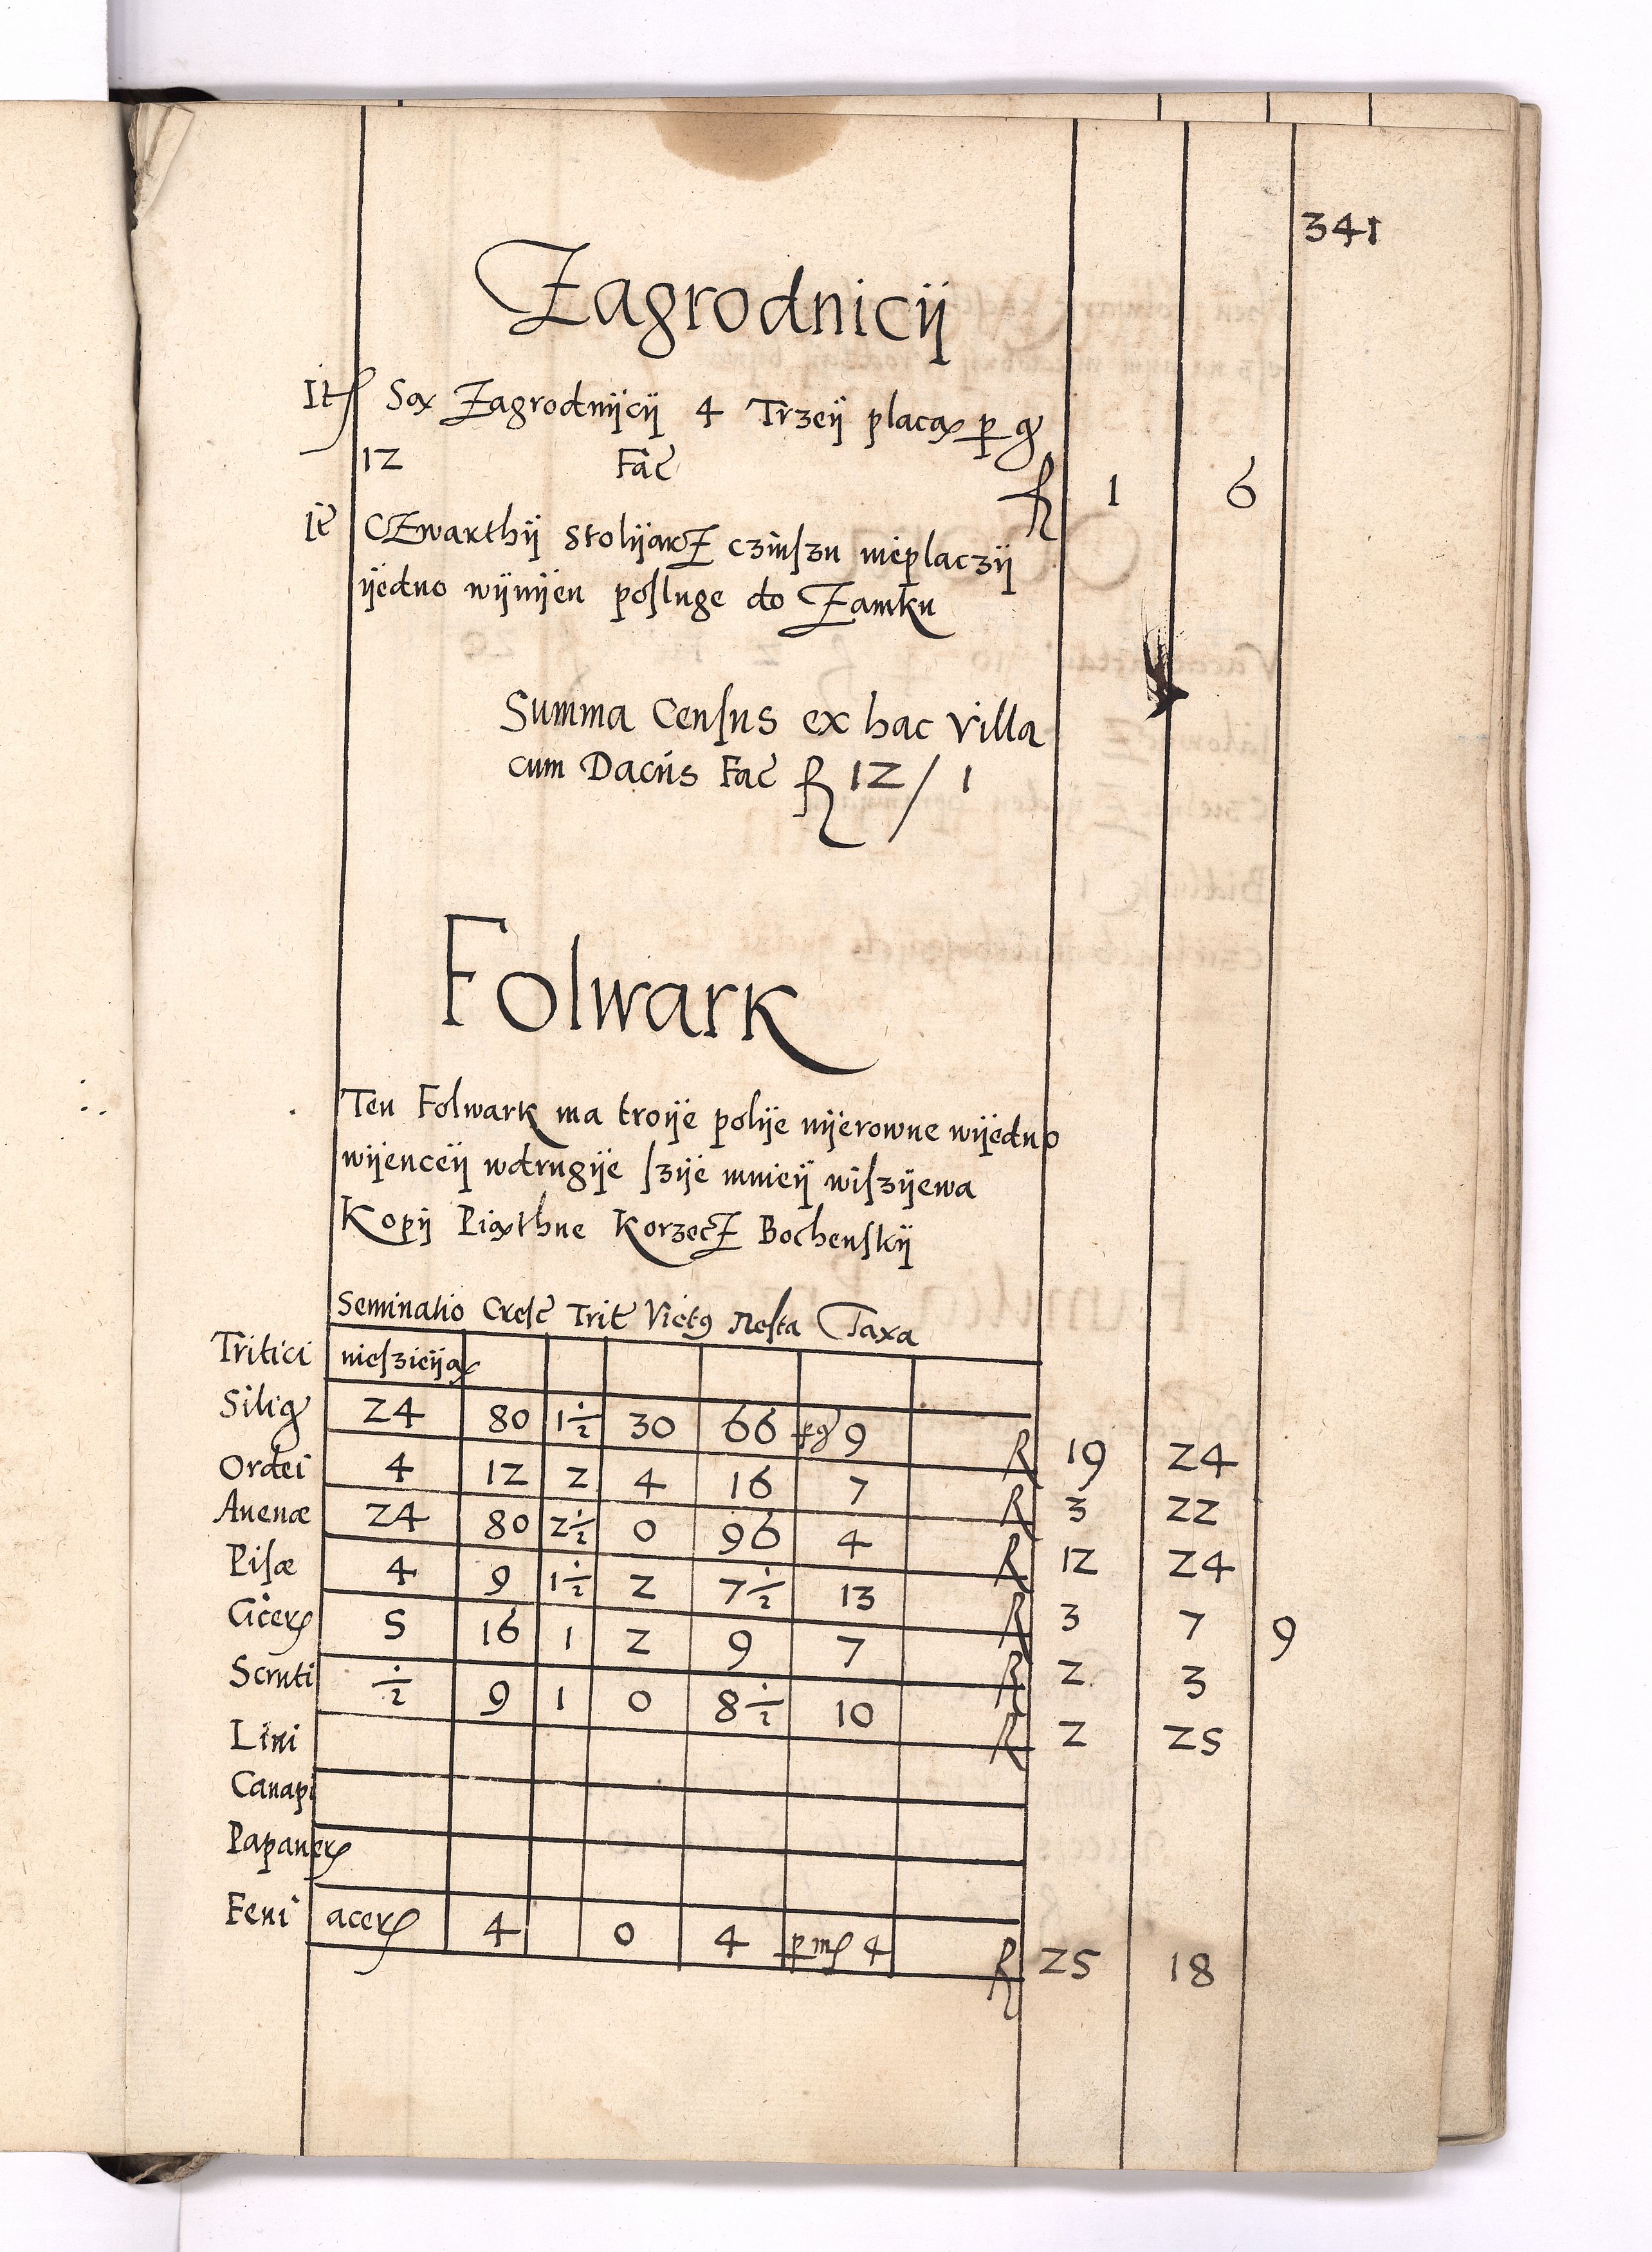 341
Zagrodnicij
Sąx Zagrodnijcij 4 Trzeij placą
12 Fac̃ 1 6
It̃ CZwarthij stolijarZ czinſzu nieplaczij
ijedno wijnijen poſluge do Zamku
Summa Cenſus ex hac villa
cum Daciis Fac̃ 12 / 1
Folwark
Ten Folwark ma troije polije nijerowne wijedno
wijenceij wdrugije ſzije mnieij wiſzijewa
Kopij Piąthne KorzecZ Bochenſkij
Seminatio Creſc̃ Trit̃ Victꝯ Reſta Taxa
Tritici nieſzieiją
Silig 24 80 1½ 30 66 pg 9 19 24
Ordei 4 12 2 4 16 7 3 22
Auenæ 24 80 2½ 0 96 4 12 24
Piſæ 4 9 1½ 2 7½ 13 3 7 9
Cicerꝭ 5 16 1 2 9 7 2 3
Scruti ½ 9 1 0 8½ 10 2 25
Lini
Canapi
Papauerꝭ
Feni acerꝭ 4 0 4 p mꝭ 4 25 18